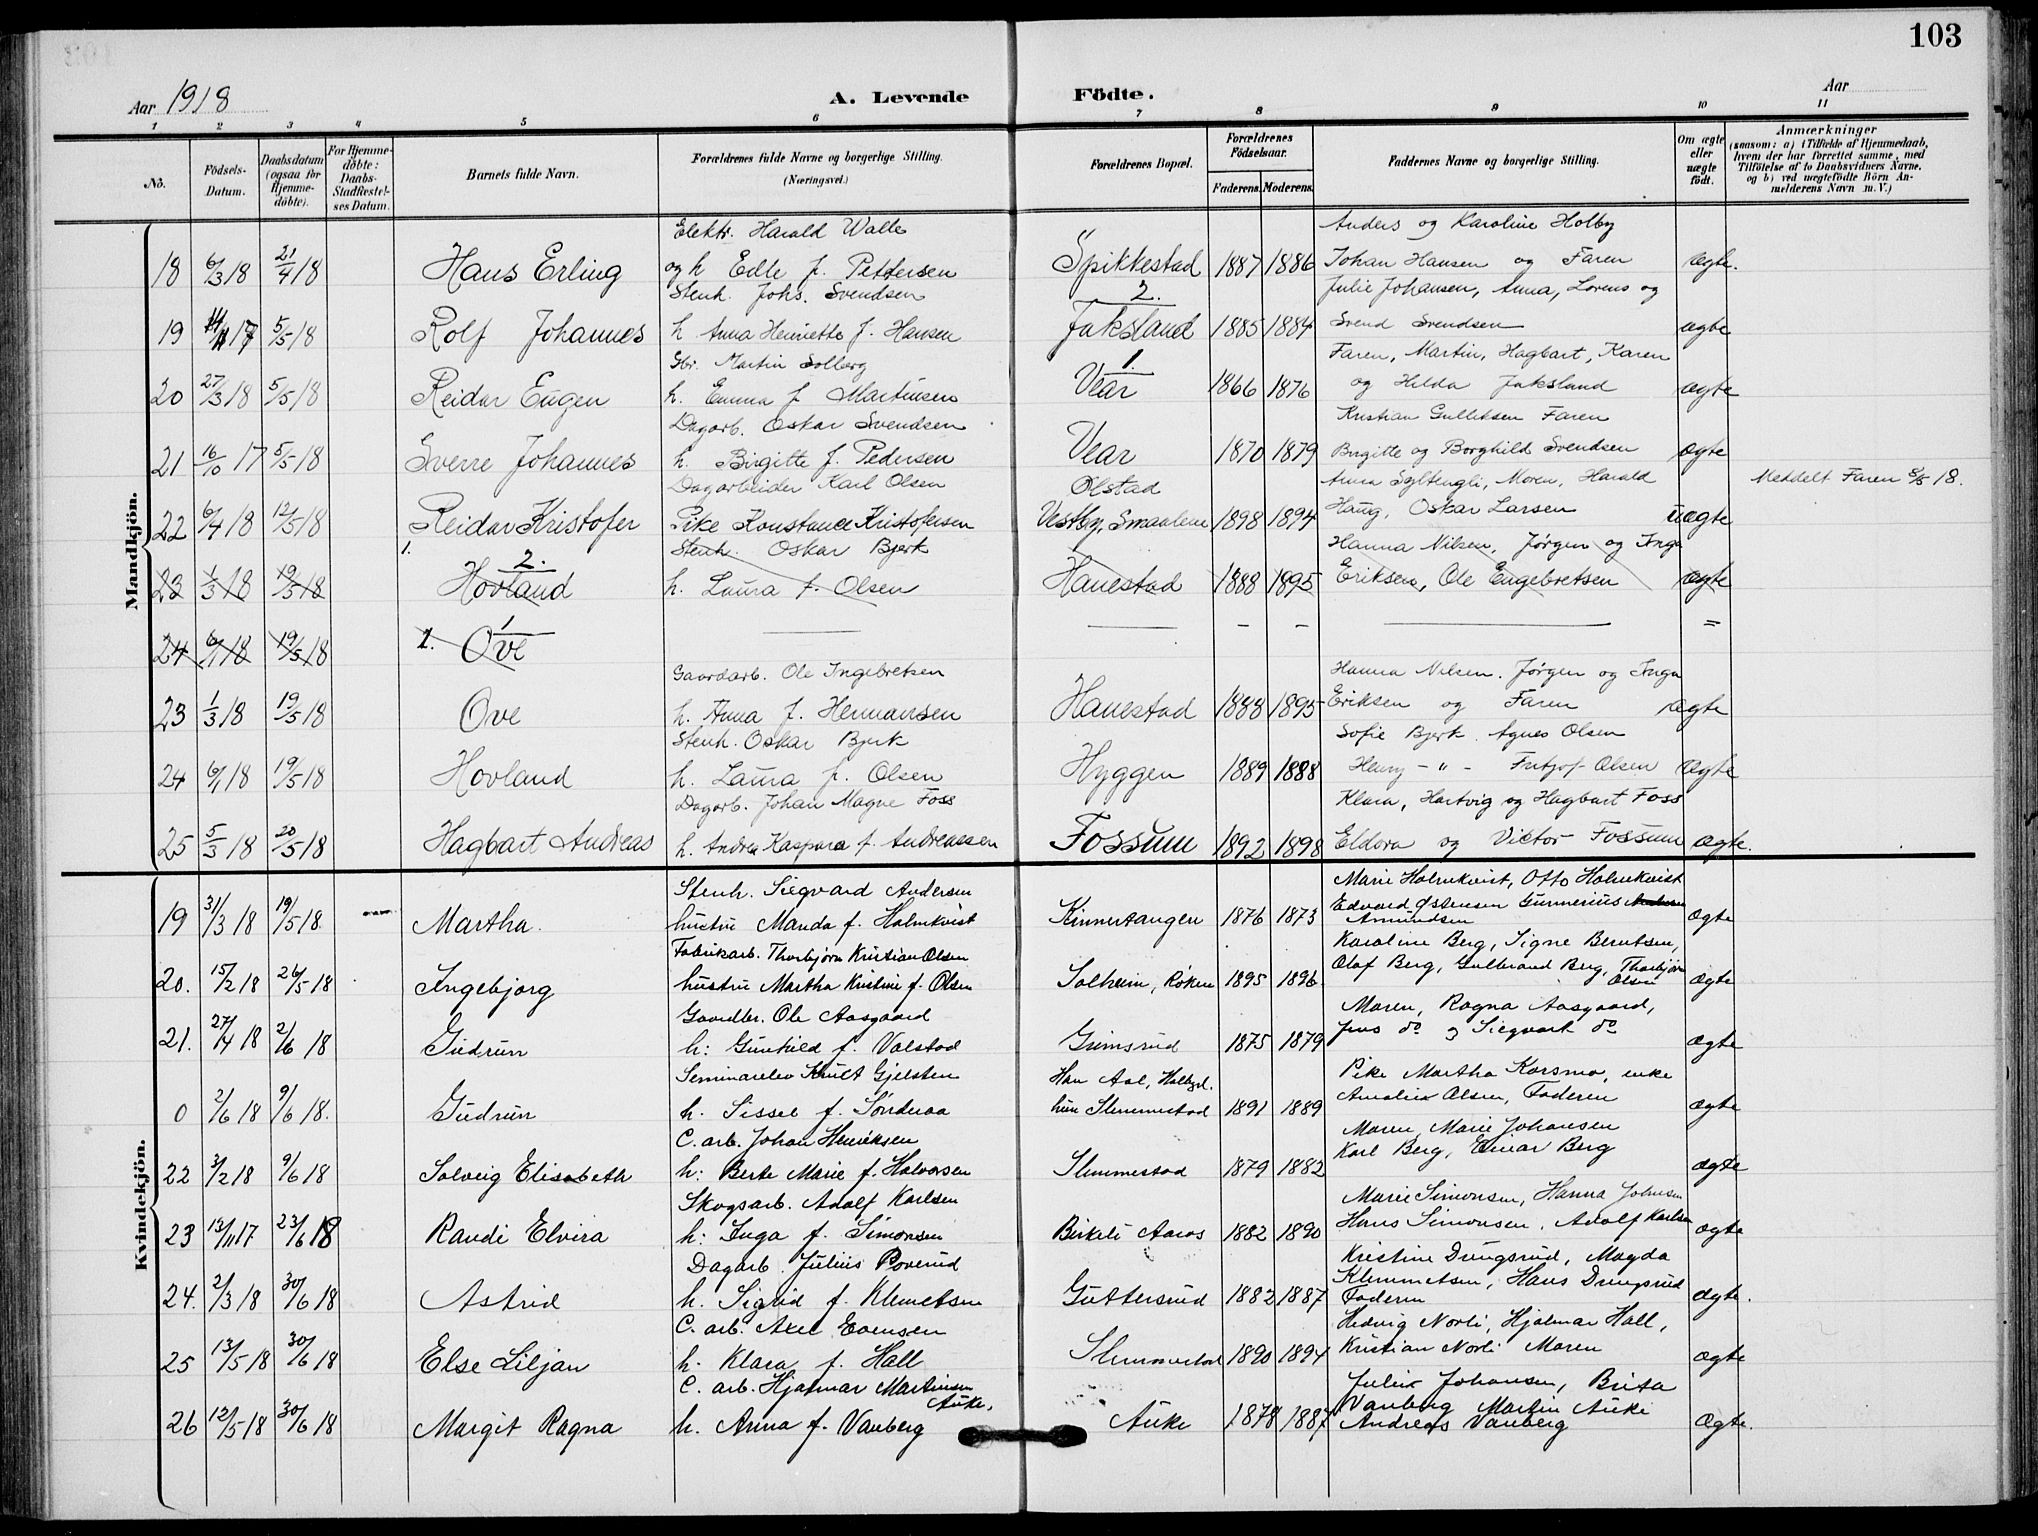 103
Aar 1918
A. Levende Födte.
Aar
1 2 3 4 5 6 7 8 9 10 11
No.
Födsels-Datum.
Daabsdatum (ogsaa for Hjemme-döbte).
For Hjemme-döbte: Daabs-Stadfæstel-ses Datum.
Barnets fulde Navn.
Forældrenes fulde Navne og borgerlige Stilling. (Næringsvei.)
Forældrenes Bopæl.
Forældrenes Födselsaar.
Faderens. Moderens.
Faddernes Navne og borgerlige Stilling.
Om ægte eller uægte födt.
Anmærkninger
(saasom: a) i Tilfælde af Hjemmedaab, hvem der har forrettet samme, med Tilföielse af to Daabsvidners Navne, og b) ved uægtefödte Börn An-melderens Navn m. V.)
Mandkjön.
Elektr. Harald Walle
Anders og Karoline Holby
18 6/3 18 21/4 18 Hans Erling og h Edle f. Pettersen Spikkestad 1887 1886 Johan Hansen og Faren ægte.
Stenh. Johs. Svendsen 2. Julie Johansen, Anna, Lorens og
19 17 5/5 18 Rolf Johannes h Anna Henriette f. Hansen Jaksland 1885 1884 Svend Svendsen ægte
Gbr. Martin Solberg 1. Faren, Martin, Hagbart, Karen
20 27/3 18 5/5 18 Reidar Eugen h. Emma f Martinsen Vear 1866 1876 og Hilda Jaksland ægte
Dagarb. Oskar Svendsen Kristian Gulliksen Faren
21 16/10 17 5/5 18 Sverre Johannes h. Birgitte f. Pedersen Vear 1870 1879 Birgitte og Borghild Svendsen ægte
Dagarbeider Karl Olsen Ølstad Anna Syltengli, Moren, Harald Meddelt Faren 8/5 18.
22 6/4 18 12/5 18 Reidar Kristofer Pike Konstance Kristofersen Vestby, Smaalene 1898 1894 Haug, Oskar Larsen uægte
1. 2. Stenh. Oskar Bjerk Hanna Nilsen, Jørgen og Inga
23 1/3 18 19/5 18 Hovland h. Laura f. Olsen Hanestad 1888 1895 Eriksen, Ole Engebretsen ægte
24 6/1 18 19/5 18 1. 1 Ove — — - - — =
Gaardarb. Ole Ingebretsen Hanna Nilsen. Jørgen og Inga
23 1/3 18 19/5 18 Ove h. Anna f. Hermansen Hanestad 1888 1895 Eriksen og Faren ægte
Stenh. Oskar Bjerk Sofie Bjerk. Agnes Olsen
24 6/1 18 19/5 18 Hovland h. Laura f. Olsen Hyggen 1889 1888 Henry - " - Fritjof Olsen ægte
Dagarb. Johan Magne Foss Klara, Hartvig og Hagbart Foss
25 5/3 18 20/5 18 Hagbart Andreas h. Andrea Kaspara f. Andreassen Fossum 1892 1898 Eldora og Victor Fossum ægte.
Kvindekjön.
Stenh. Siegvard Andersen Marie Holmkvist, Otto Holmkvist
19 31/3 18 19/5 18. Martha. hustru Manda f. Holmkvist Kinnertangen 1876 1873 Edvard Østensen Gunnerius Amundsen ægte
Fabrikarb. Thorbjørn Kristian Olsen Karoline Berg, Signe Berntsen,
20. 15/2 18 26/5 18 Ingebjorg hustru Martha Kristine f. Olsen Solheim, Røken 1895 1896. Olaf Berg, Gulbrand Berg, Thorbjørn Olsen ægte
Gaardbr. Ole Aasgaard Moren, Ragna Aasgaard,
21. 27/4 18 2/6 18 Gudrun h: Gunhild f. Valstad Grimsrud 1875 1879 Jens do og Siegvart do ægte
Seminarelev Knut Gjelsten Han Aal, Hallgd. Pike Martha Korsmo, enke
0 2/6 18 9/6 18. Gudrun h. Sissel f. Sønderaa hun Slemmestad 1891 1889 Amalie Olsen, Faderen ægte
C. arb. Johan Henriksen Moren, Marie Johansen
22 3/2 18 9/6 18 Solveig Elisabeth h: Berte Marie f. Halvorsen Slemmestad 1879 1882 Karl Berg, Einar Berg ægte
Skogsarb. Adolf Karlsen Marie Simonsen, Hanna Johnsen
23 13/11 17 23/6 18 Randi Elvira h: Inga f. Simonsen Birkeli Aaros 1882 1890 Hans Simonsen, Adolf Karlsen ægte
Dagarb. Julius Poverud Kristine Dungsrud, Magda
24. 2/3 18 30/6 18 Astrid h. Sigrid f. Klemetsen Guttersrud 1882 1887 Klemmetsen, Hans Dungsrud Faderen ægte.
C. arb. Axel Evensen Hedvig Norli, Hjalmar Hall,
25 13/5 18 30/6 18 Else Liljan h. Klara f. Hall Slemmestad 1890 1894 Kristian Norli Moren ægte
C. arb. Hjalmar Martinsen Auke, Julie Johansen, Brita
26 12/5 18 30/6 18 Margit Ragna h. Anna f. Vanberg Auke 1878 1887 Vanberg Martin Auke Andreas Vanberg Ægte.